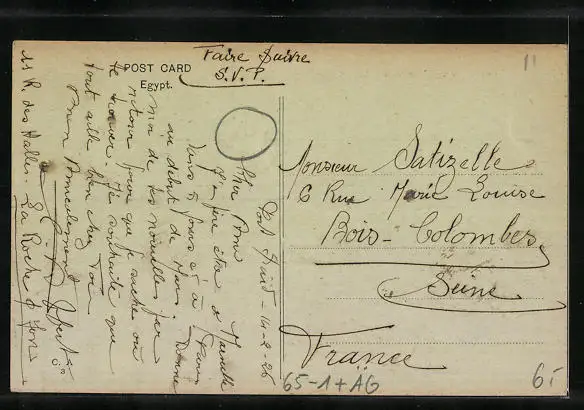 Faire Suivre
S.V.P.
POST CARD
Egypt.
11
Port Saïd - 14-2-26
Cher Ami
J'espère être à Marseille
dans 8 jours et à Paris
au début de Mars. Donne
moi de tes nouvelles par
retour pour que je sache où
te trouver. Je souhaite que
tout aille bien chez toi
Bien Amicalement
11 R. des Halles. La Roche s/ Yon
Monsieur Satizelle
6 Rue Marie Louise
Bois-Colombes
Seine
France
65-1+AG
6.-